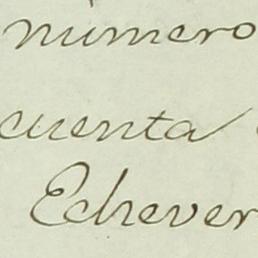 número
cuenta
Echever